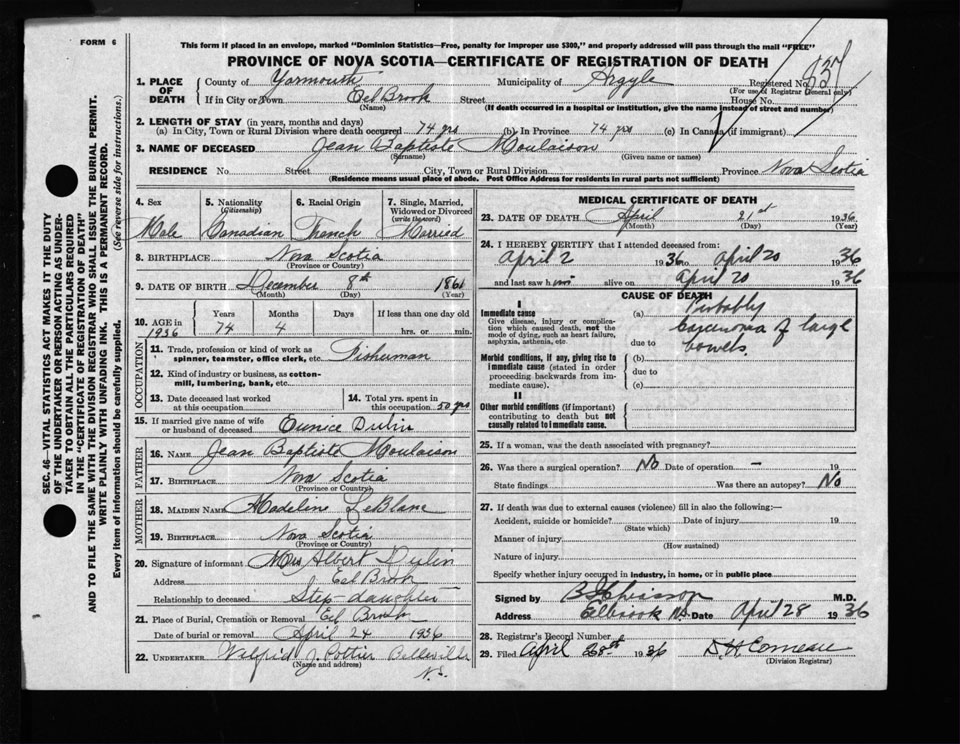 FORM 6
This form if placed in an envelope, marked "Dominion Statistics—Free, penalty for improper use $300," and properly addressed will pass through the mail "FREE"
PROVINCE OF NOVA SCOTIA—CERTIFICATE OF REGISTRATION OF DEATH
1. PLACE OF DEATH
County of Yarmouth Municipality of Argyle Registered No. 837
(For use of Registrar General only)
If in City or Town Eel Brook Street House No.
(Name) (If death occurred in a hospital or institution, give the name instead of street and number)
2. LENGTH OF STAY (in years, months and days)
(a) In City, Town or Rural Division where death occurred 74 yrs (b) In Province 74 yrs (c) In Canada (if immigrant)
3. NAME OF DECEASED Jean Baptiste Moulaison
(Surname) (Given name or names)
RESIDENCE No. Street City, Town or Rural Division Province Nova Scotia
(Residence means usual place of abode. Post Office Address for residents in rural parts not sufficient)
4. Sex
Male
5. Nationality (Citizenship)
Canadian
6. Racial Origin
French
7. Single, Married, Widowed or Divorced (write the word)
Married
8. BIRTHPLACE Nova Scotia
(Province or Country)
9. DATE OF BIRTH December 8th 1861
(Month) (Day) (Year)
10. AGE in 1936
Years Months Days If less than one day old
74 4 hrs. or min.
OCCUPATION
11. Trade, profession or kind of work as spinner, teamster, office clerk, etc. Fisherman
12. Kind of industry or business, as cotton-mill, lumbering, bank, etc.
13. Date deceased last worked at this occupation
14. Total yrs. spent in this occupation 50 yrs
15. If married give name of wife or husband of deceased Eunice Dulin
FATHER
16. NAME Jean Baptiste Moulaison
17. BIRTHPLACE Nova Scotia
(Province or Country)
MOTHER
18. MAIDEN NAME Madeline LeBlanc
19. BIRTHPLACE Nova Scotia
(Province or Country)
20. Signature of informant Mrs Albert Dulin
Address Eel Brook
Relationship to deceased Step-daughter
21. Place of Burial, Cremation or Removal Eel Brook
Date of burial or removal April 24 1936
22. UNDERTAKER Walfrid J Pottier Belleville
(Name and address) N.S.
MEDICAL CERTIFICATE OF DEATH
23. DATE OF DEATH April 21st 1936
(Month) (Day) (Year)
24. I HEREBY CERTIFY that I attended deceased from:
April 2 1936 to April 20 1936
and last saw him alive on April 20 1936
CAUSE OF DEATH
I
Immediate cause
Give disease, injury or complication which caused death, not the mode of dying, such as heart failure, asphyxia, asthenia, etc.
(a) Probably
carcinoma of large
due to bowels.
Morbid conditions, if any, giving rise to immediate cause (stated in order proceeding backwards from immediate cause).
(b)
due to
(c)
II
Other morbid conditions (if important) contributing to death but not causally related to immediate cause.
25. If a woman, was the death associated with pregnancy?
26. Was there a surgical operation? No Date of operation — 19
State findings Was there an autopsy? No
27. If death was due to external causes (violence) fill in also the following:—
Accident, suicide or homicide? Date of injury 19
(State which)
Manner of injury
(How sustained)
Nature of injury
Specify whether injury occurred in industry, in home, or in public place
Signed by M.D.
Address Eelbrook N.S. Date April 28 1936
28. Registrar's Record Number
29. Filed April 28th 1936 D. H. Comeau
(Division Registrar)
SEC. 46—VITAL STATISTICS ACT MAKES IT THE DUTY
OF THE UNDERTAKER OR PERSON ACTING AS UNDER-
TAKER TO OBTAIN ALL THE PARTICULARS REQUIRED
IN THE "CERTIFICATE OF REGISTRATION OF DEATH"
AND TO FILE THE SAME WITH THE DIVISION REGISTRAR WHO SHALL ISSUE THE BURIAL PERMIT.
WRITE PLAINLY WITH UNFADING INK. THIS IS A PERMANENT RECORD.
Every item of information should be carefully supplied. (See reverse side for instructions.)